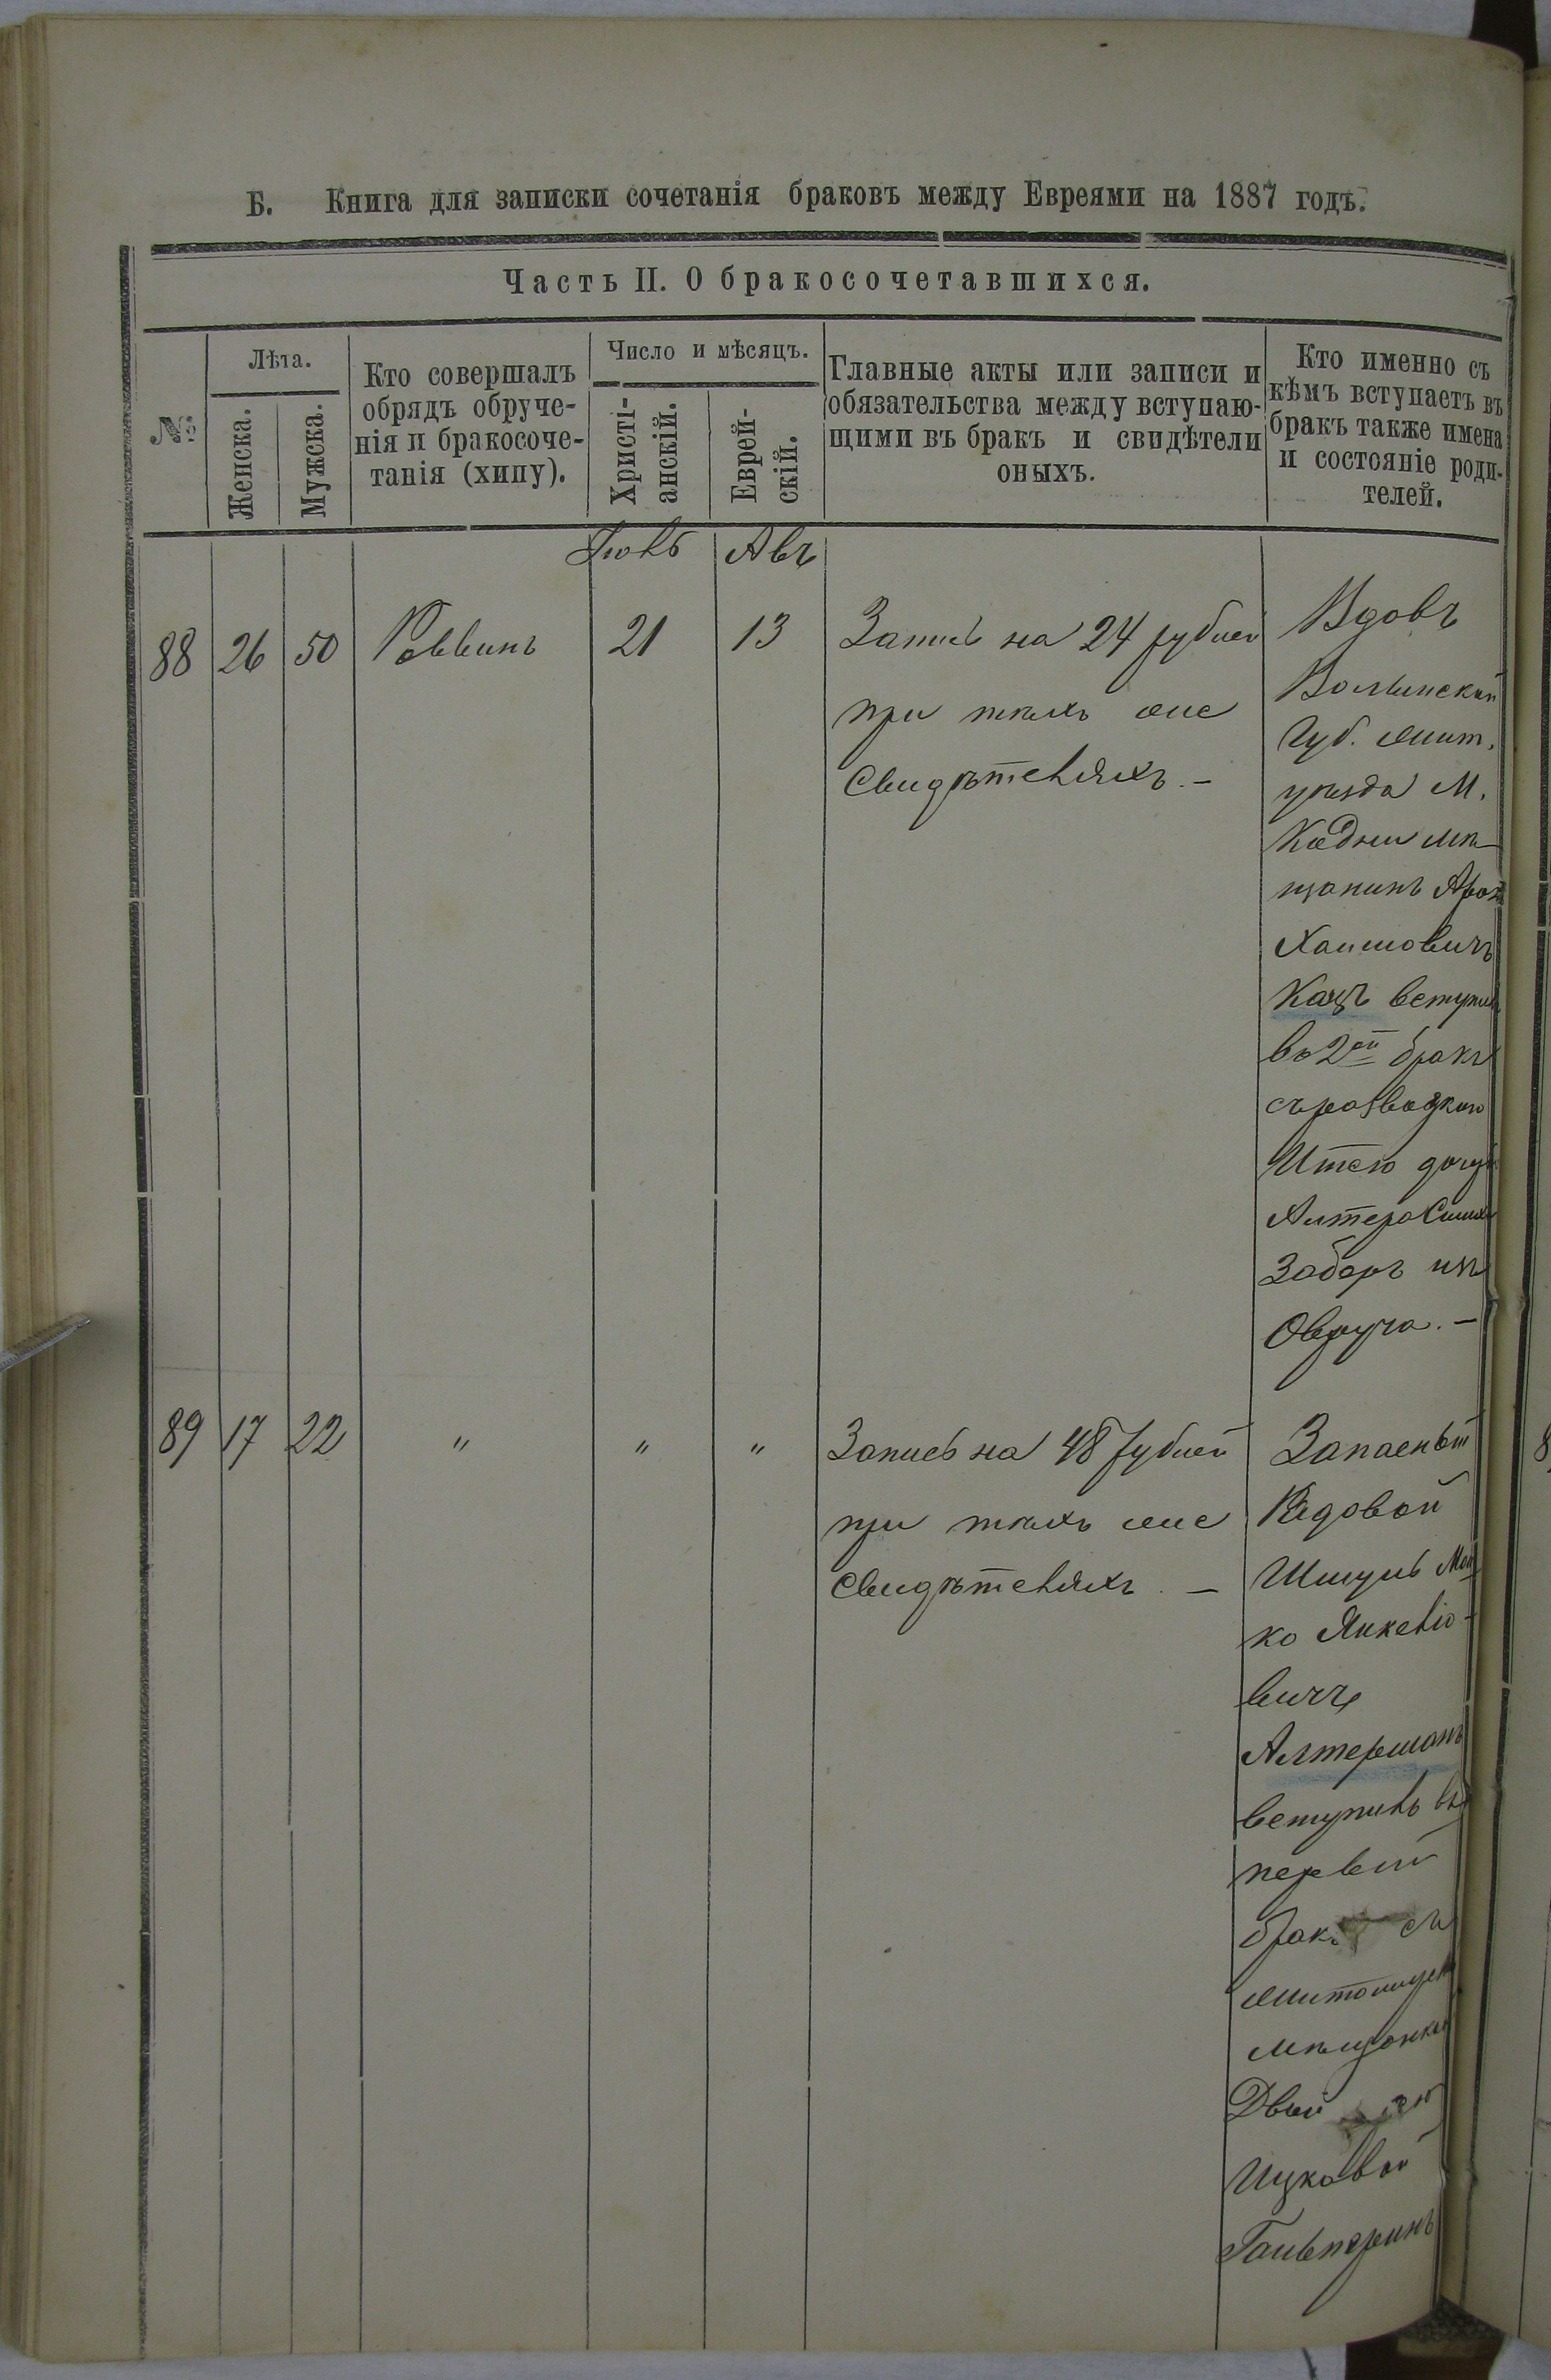 Б. Книга для записки сочетанія браковъ между Евреями на 1887 годъ.
Часть II. О бракосочетавшихся.
№
Лѣта.
Женска.
Мужска.
Кто совершалъ
обрядъ обруче-
нія и бракосоче-
танія (хипу).
Число и мѣсяцъ.
Христі-
анскій.
Еврей-
скій.
Главные акты или записи и
обязательства между вступаю-
щими въ бракъ и свидѣтели
оныхъ.
Кто именно съ
кѣмъ вступаетъ въ
бракъ также имена
и состояніе роди-
телей.
Авъ
88 26 50 Раввинъ 21 13
Запись на 24 рублей
при тѣхъ же
свидѣтеляхъ. —
Вдовъ
Волынской
Губ. Жит.
уѣзда М.
Кодни мѣ-
щанинъ Арон
Хаимовичъ
Кацъ вступил
въ 2ой бракъ
съ разводкою
Итею
Алтера
Заборъ изъ
Овруча. —
89 17 22 " " "
Запись на 48 рублей
при тѣхъ же
свидѣтеляхъ. —
Запасный
Рядовой
Шмуль Мош
ко Янкеліо-
вичъ
Алтерманъ
вступилъ въ
первый
бракъ съ
мѣщанкою
Ицковой
Гальперинъ